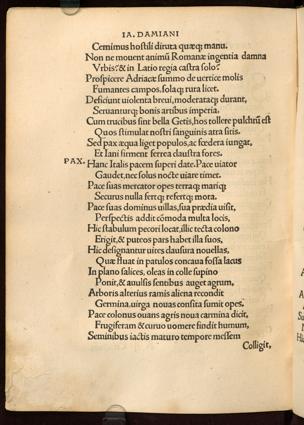 IA. DAMIANI
Cernimus hostili diruta quæq; manu.
Non ne mouent animũ Romanæ ingentia damna
Vrbis? & in Latio regia castra solo?
Prospicere Adriacæ summo de uertice molis
Fumantes campos, sola q; ruta licet.
Deficiunt uiolenta breui, moderataq; durant,
Seruanturq; bonis artibus imperia.
Cum trucibus sint bella Getis, hos tollere pulchrũ est
Quos stimulat nostri sanguinis atra sitis.
Sed pax æqua liget populos, ac fœdera iungat,
Et Iani firment ferrea claustra fores.
PAX. Hanc Italis pacem superi date. Pace uiator
Gaudet, nec solus nocte uiare timet.
Pace suas mercator opes terraq; mariq;
Securus nulla fertq; refertq; mora.
Pace suas dominus uillas, sua prædia uisit,
Perspectis addit cõmoda multa locis,
Hic stabulum pecori locat, illic tecta colono
Erigit, & puteos pars habet illa suos,
Hic designantur uires clausura nouellas,
Quæ fluat in patulos concaua fossa lacus
In plano salices, oleas in colle supino
Ponit, & auulsis sentibus auget agrum,
Arboris alterius ramis aliena recondit
Germina, uirga nouas consita sumit opes.
Pace colonus ouans agris noua carmina dicit,
Frugiferam & curuo uomere findit humum,
Seminibus iactis maturo tempore messem
Colligit,